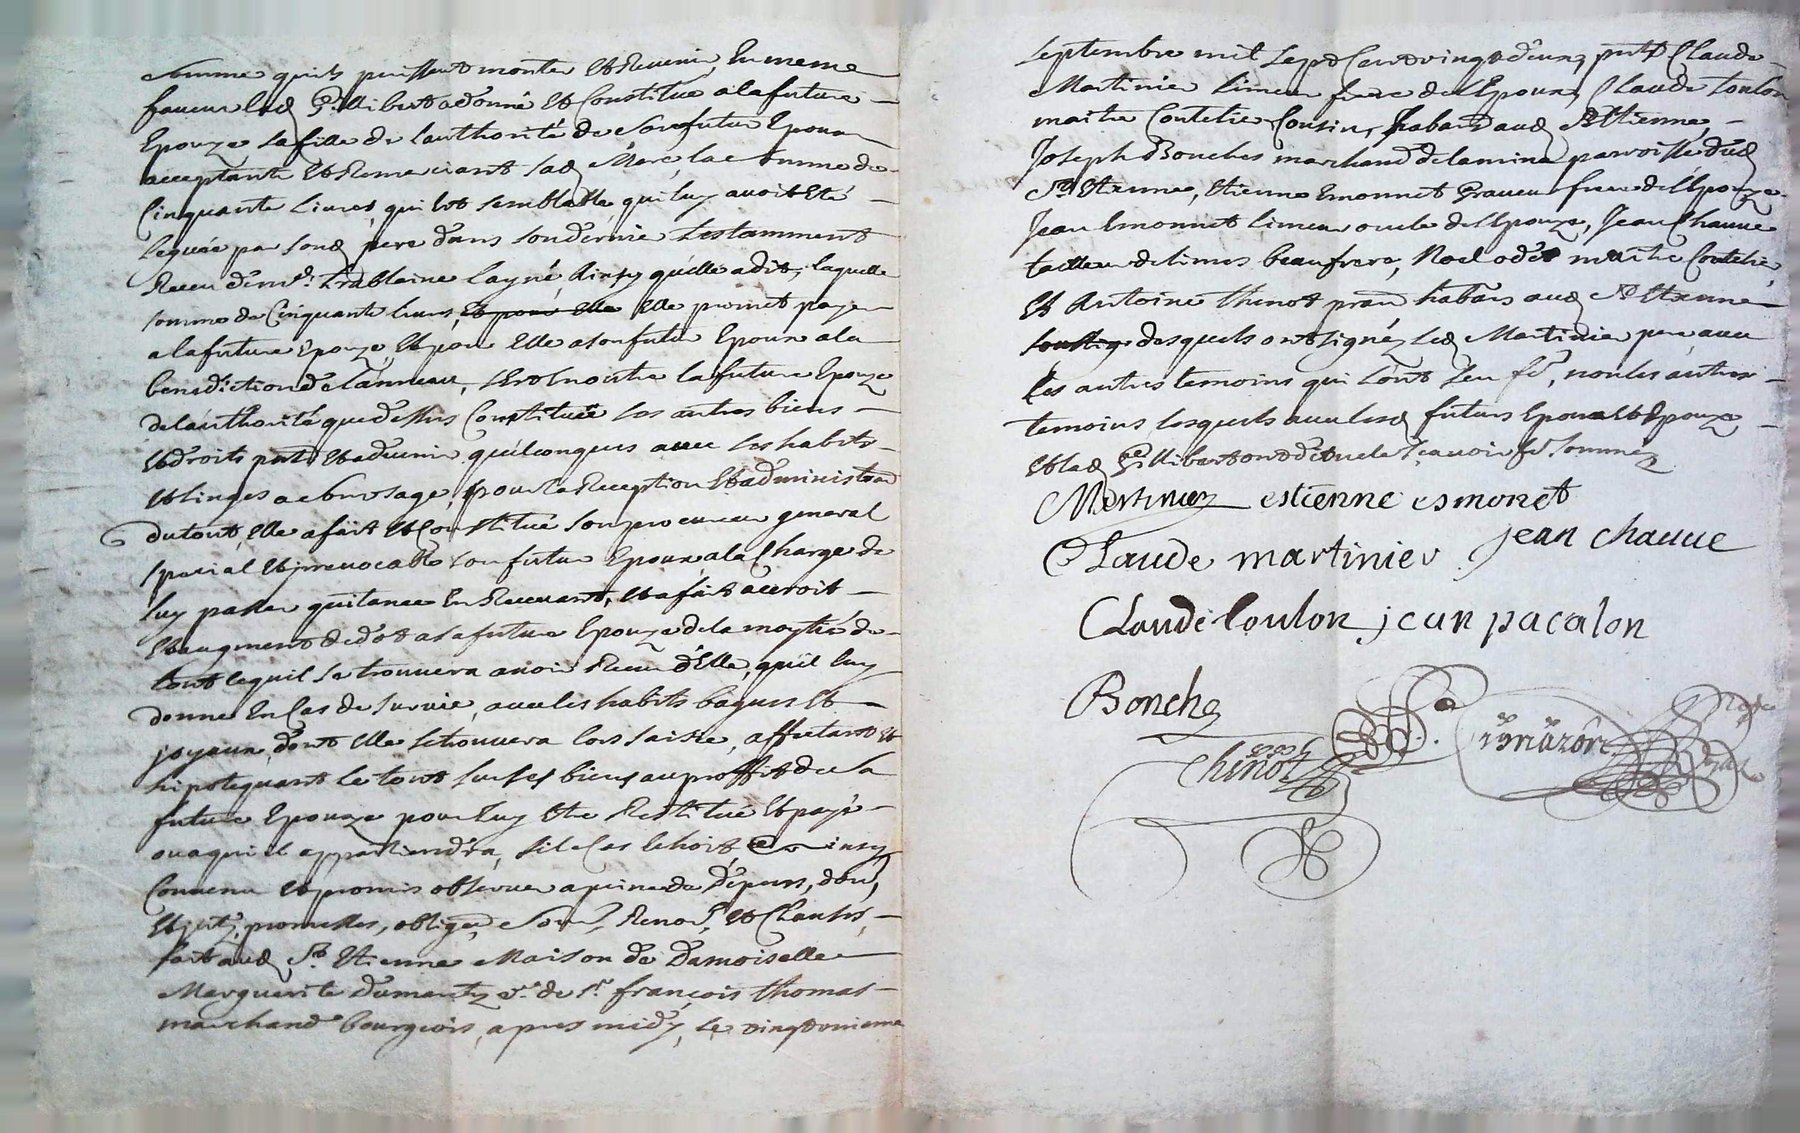 somme quils puissent monter et Revenir, En meme
faveur lad Gillibert a donné et Constitué a la future
Epouze sa fille de l'authorité de son futur Epoux
acceptante et Remerciant sad Mere, la somme de
Cinquante Livres, qui est semblable, qui luy avoit Eté
leguée par sond pere dans son dernier testamment
Receu de mr. trablaine layné ainsy quelle a dit, laquelle
somme de Cinquante livres, et pour elle Elle promet payer
a la future Epouze, Et pour Elle a son futur Epoux a la
benediction de l'anneau, Et En outre la future Epouze
de l'authorité que dessus Constitue ses autres biens
et droits pnts et advenir quelconques avec ses habits
et linges a son usage, pour la Reception et administraon
du tout, Elle a fait et Constitué son procureur general
special et jrrevocable son futur Epoux, a la Charge de
luy passer quitance En Recevant, Et a fait accroit
et augment de dot a sa future Epouze de la moytié de
tout ce quil se trouvera avoir Receu d'Elle, quil luy
donne En Cas de survie, avec les habits bagues et
joyaux dont elle se trouvera lors saisie, affectant et
hipotequant le tout sur ses biens au proffit de sa
future Epouze pour luy Etre Restitué et payé
ou a qui il appartiendra, sil e Cas le hoit, ainsy
Convenu et promis observer a peine de Depens, dom,
et jnts, promesses, obligaõn, Soum, Renon, et Clauses,
fait aud St. Etienne Maison de Damoiselle
Marguerite dumantz ve. de sr. françois thomas
marchand bourgeois, apres midy, Le vingt deuxieme
septembre mil sept Cent vingt d'eux, pnts Claude
Martinier limeur frere de l'Epoux, Claude Coulon
maitre Coutelier Cousin, habants aud St Etienne,
Joseph Bonches marchand de lamina parroisse dud
St Etienne, Etienne Emonnet Graveur frere de l'Epouze
Jean Emonnet limeur oncle de l'Epouze, Jean Chauve
tailleur de limes beaufrere, Noel odet maitre Coutelier,
et Antoine thinot pratn habants aud St Etienne
soussig desquels ont signé led Martinier pere avec
les autres temoins qui l'ont sceu fe, non les autres
temoins lesquels avec lesd futurs Epoux et Epouze
et lad Gillibert ont dit ne le sçavoir fe sommés
Martinier estienne esmonet
Claude martinier jean chauue
Claude Coulon jean pacalon
Bonche
thinot